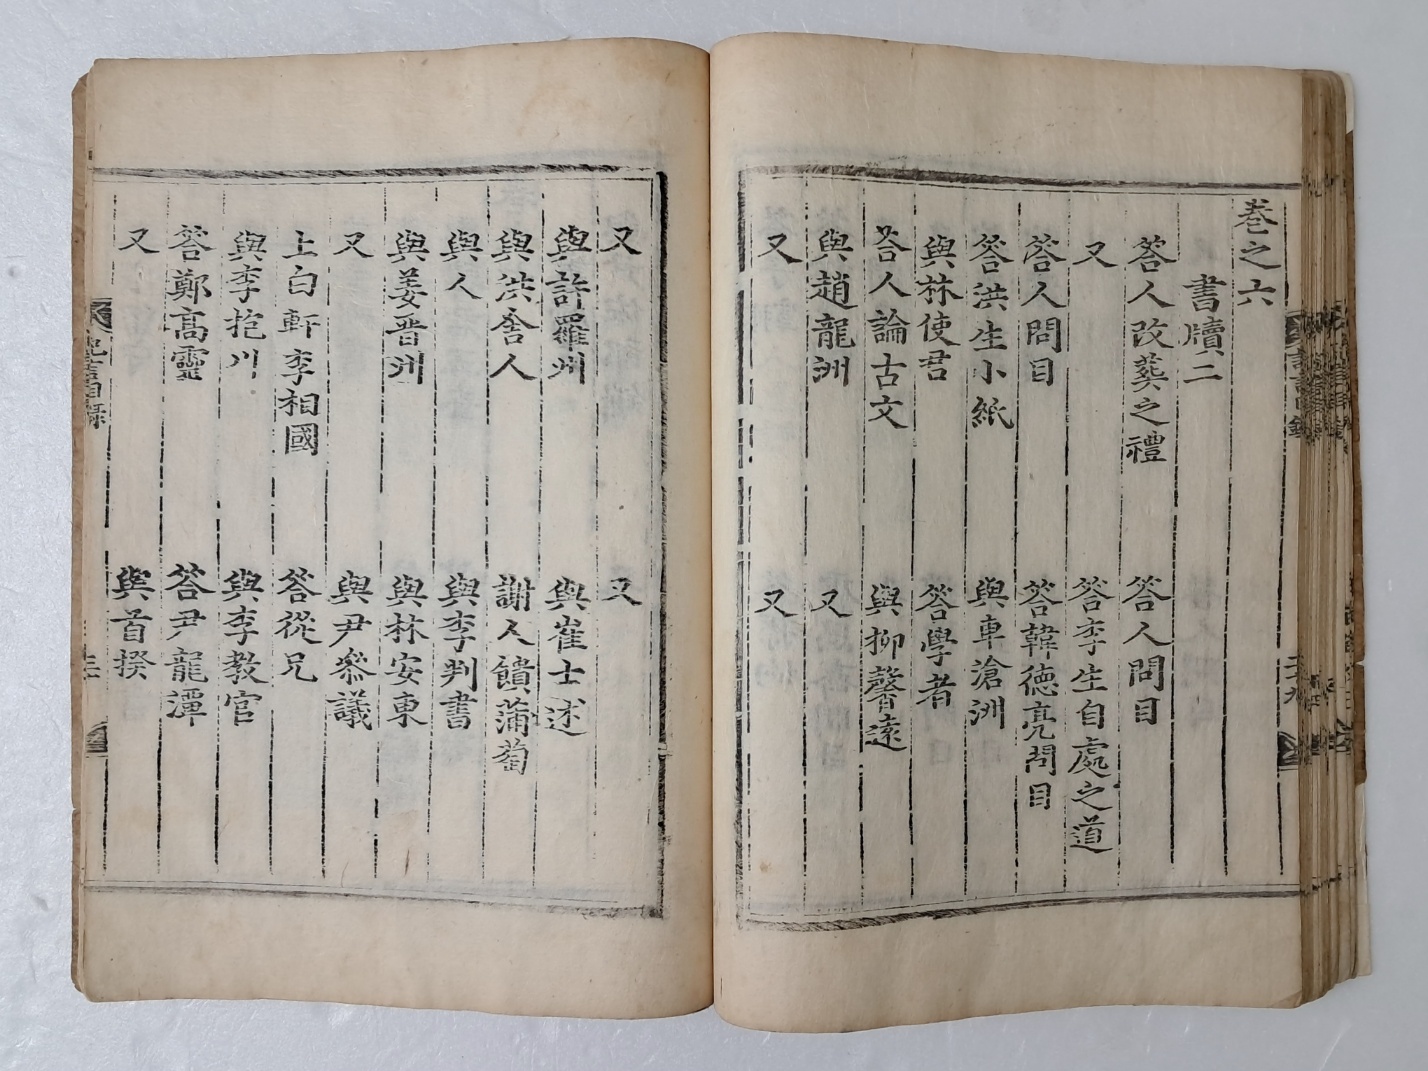 卷之六
書牘二
答人改葬之禮 答人問目
又 答李生自處之道
答人問目 答韓德亮問目
答洪生小紙 與車滄洲
與林使君 答學者
答人論古文 與柳馨遠
與趙龍洲 又
又 又
又 又
與許羅州 與崔士述
與洪舍人 謝人饋蒲萄
與人 與李判書
與姜晋州 與林安東
又 與尹參議
上白軒李相國 答從兄
與李抱川 與李教官
答鄭高靈 答尹龍潭
又 與首揆
記言目錄